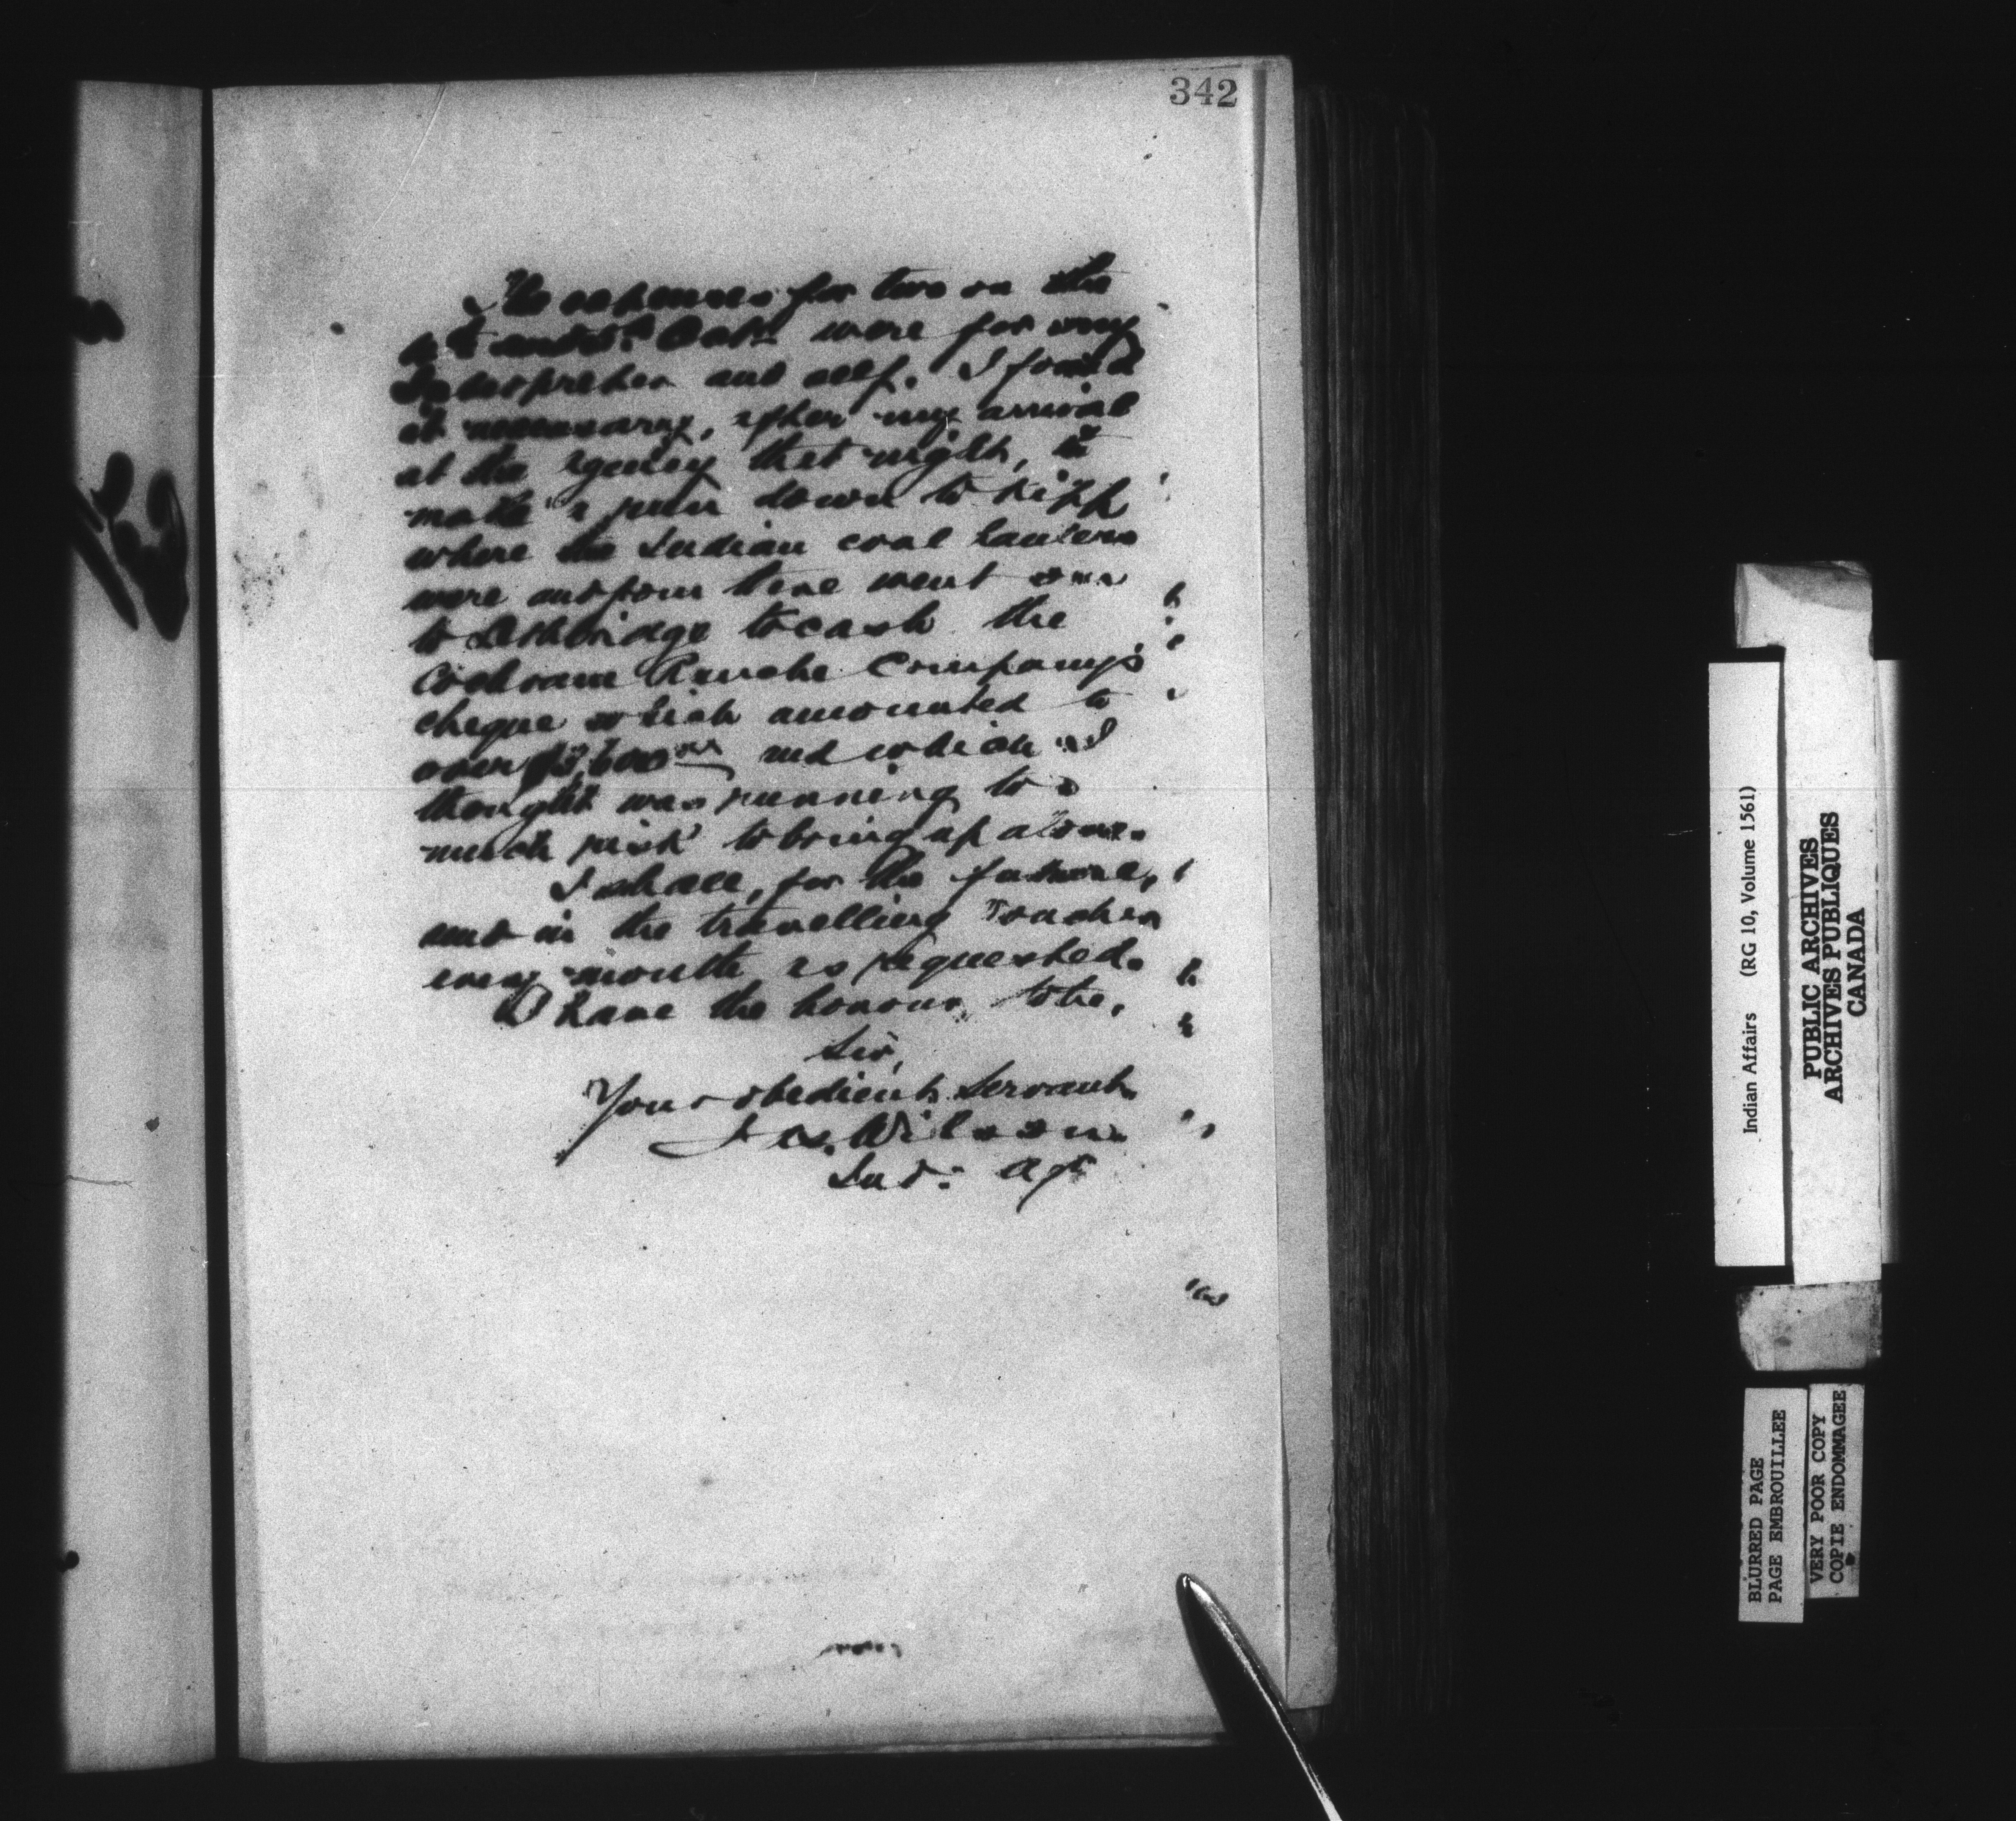 342
The expenses for two on the
and Oct. were for my
Interpreter and self. I found
it necessary, after my arrival
at the Agency that night, to
make a run down to Kipp
where the Indian coal haulers
were and from there went on
to Lethbridge to cash the
Cochrane Ranche Company's
cheque which amounted to
over and which I
thought was running too
much risk to bring up alone.
I shall, for the future,
send in the travelling voucher
every month as requested.
I have the honour to be,
Sir,
Your obedient Servant
Jas. Wilson
Ind: Agt
Indian Affairs (RG 10, Volume 1561)
PUBLIC ARCHIVES
ARCHIVES PUBLIQUES
CANADA
BLURRED PAGE
PAGE EMBROUILLEE
VERY POOR COPY
COPIE ENDOMMAGEE